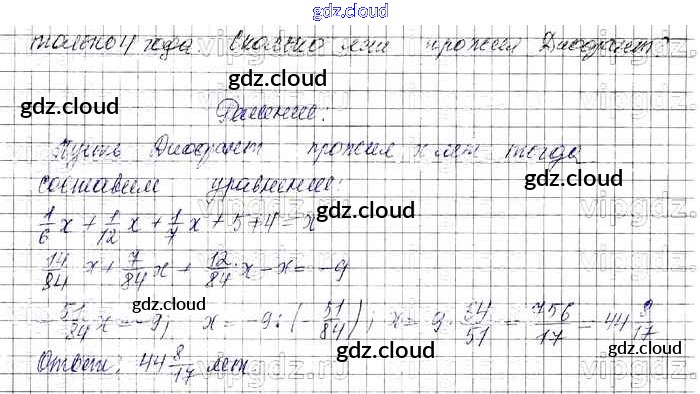 gdz.cloud
только 4 года. Сколько лет прожил Диофант?
gdz.cloud
gdz.cloud
Решение:
gdz.cloud
Пусть Диофант прожил x лет тогда
gdz.cloud
составим уравнение:
gdz.cloud
1/6 x + 1/12 x + 1/7 x + 5 + 4 = x
14/84 x + 7/84 x + 12/84 x - x = -9
gdz.cloud
gdz.cloud
gdz.cloud
-51/84 x = -9; x = -9 : (-51/84); x = 9 · 84/51 = 756/17 = 44 8/17
gdz.cloud
gdz.cloud
Ответ: 44 8/17 лет